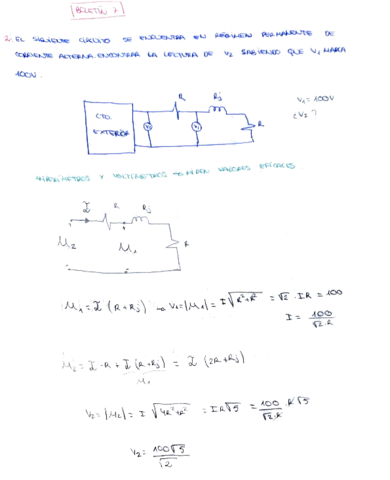 BOLETÍN 7
2. EL SIGUIENTE CIRCUITO SE ENCUENTRA EN RÉGIMEN PERMANENTE DE
CORRIENTE ALTERNA. ENCONTRAR LA LECTURA DE V2 SABIENDO QUE V1 MARCA
100V.
R Rj
CTO.
EXTERIOR
V2 V1 R
V1 = 100V
¿V2?
AMPERÍMETROS Y VOLTÍMETROS → MIDEN VALORES EFICACES
I R Rj
U2 U1 R
U1 = I (R + Rj) → V1 = |U1| = I √R²+R² = √2 · IR = 100
I = 100 / √2·R
U2 = I · R + I (R + Rj) = I (2R + Rj)
U1
V2 = |U2| = I √4R²+R² = IR√5 = 100 / √2·R · R√5
V2 = 100√5 / √2